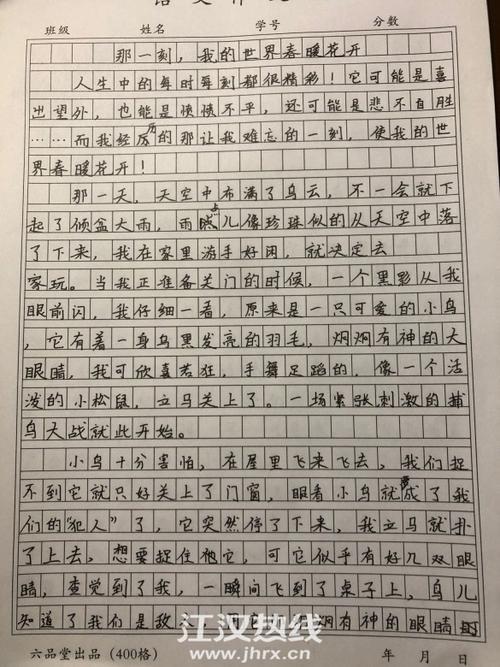 班级 姓名 学号 分数
那一刻，我的世界春暖花开
人生中的每时每刻都很精彩！它可能是喜
出望外，也能是愤愤不平，还可能是悲不自胜
……而我经历的那让我难忘的一刻，使我的世
界春暖花开！
那一天，天空中布满了乌云，不一会就下
起了倾盆大雨，雨点儿像珍珠似的从天空中落
了下来，我在家里游手好闲，就决定去
家玩。当我正准备关门的时候，一个黑影从我
眼前闪，我仔细一看，原来是一只可爱的小鸟
，它有着一身乌黑发亮的羽毛，炯炯有神的大
眼睛，我可欣喜若狂，手舞足蹈的，像一个活
泼的小松鼠，立马关上了。一场紧张刺激的捕
鸟大战就此开始。
小鸟十分害怕，在屋里飞来飞去，我们捉
不到它就只好关上了门窗，眼看小鸟就要成了我
们的“犯人”了，它突然停了下来，我立马就扑
了上去，想要捉住它，可它似乎有好几双眼
睛，查觉到了我，一瞬间飞到了桌子上，鸟儿
知道了我们是敌人，有神的眼睛
六品堂出品（400格） 年 月 日
江汉热线
www.jhrx.cn